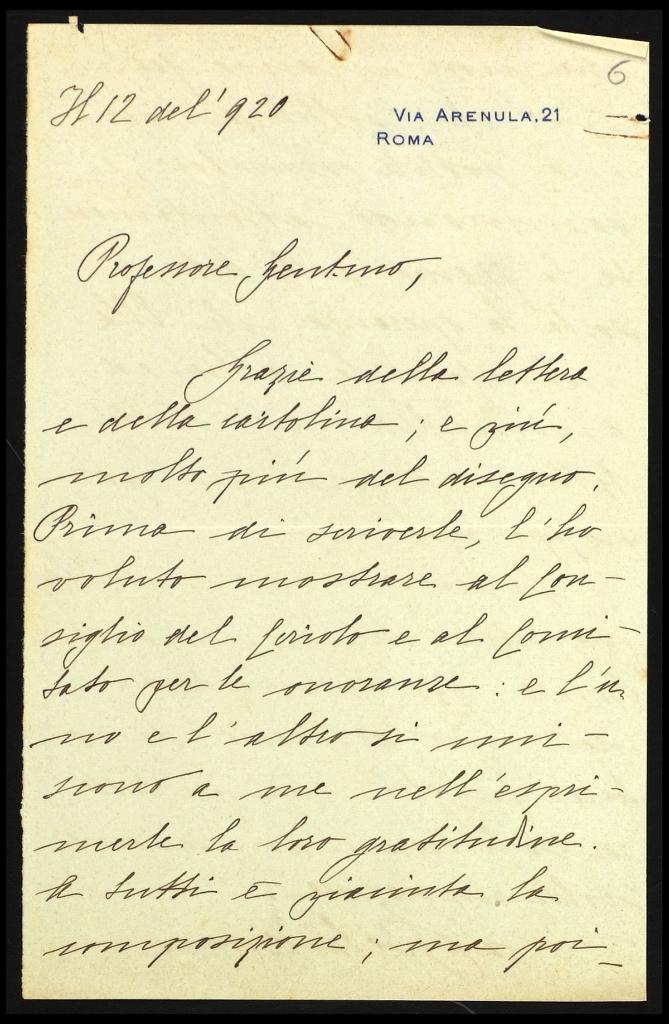 6
Il 12 del '920
VIA ARENULA, 21
ROMA
Professore Gentmo,
Grazie della lettera
e della cartolina; e più,
molto più del disegno.
Prima di scriverle, l'ho
voluto mostrare al Con-
siglio del Circolo e al Comi-
tato per le onoranze: e l'u-
no e l'altro si uni-
scono a me nell'espri-
merle la loro gratitudine.
A tutti è piaciuta la
composizione; ma poi-